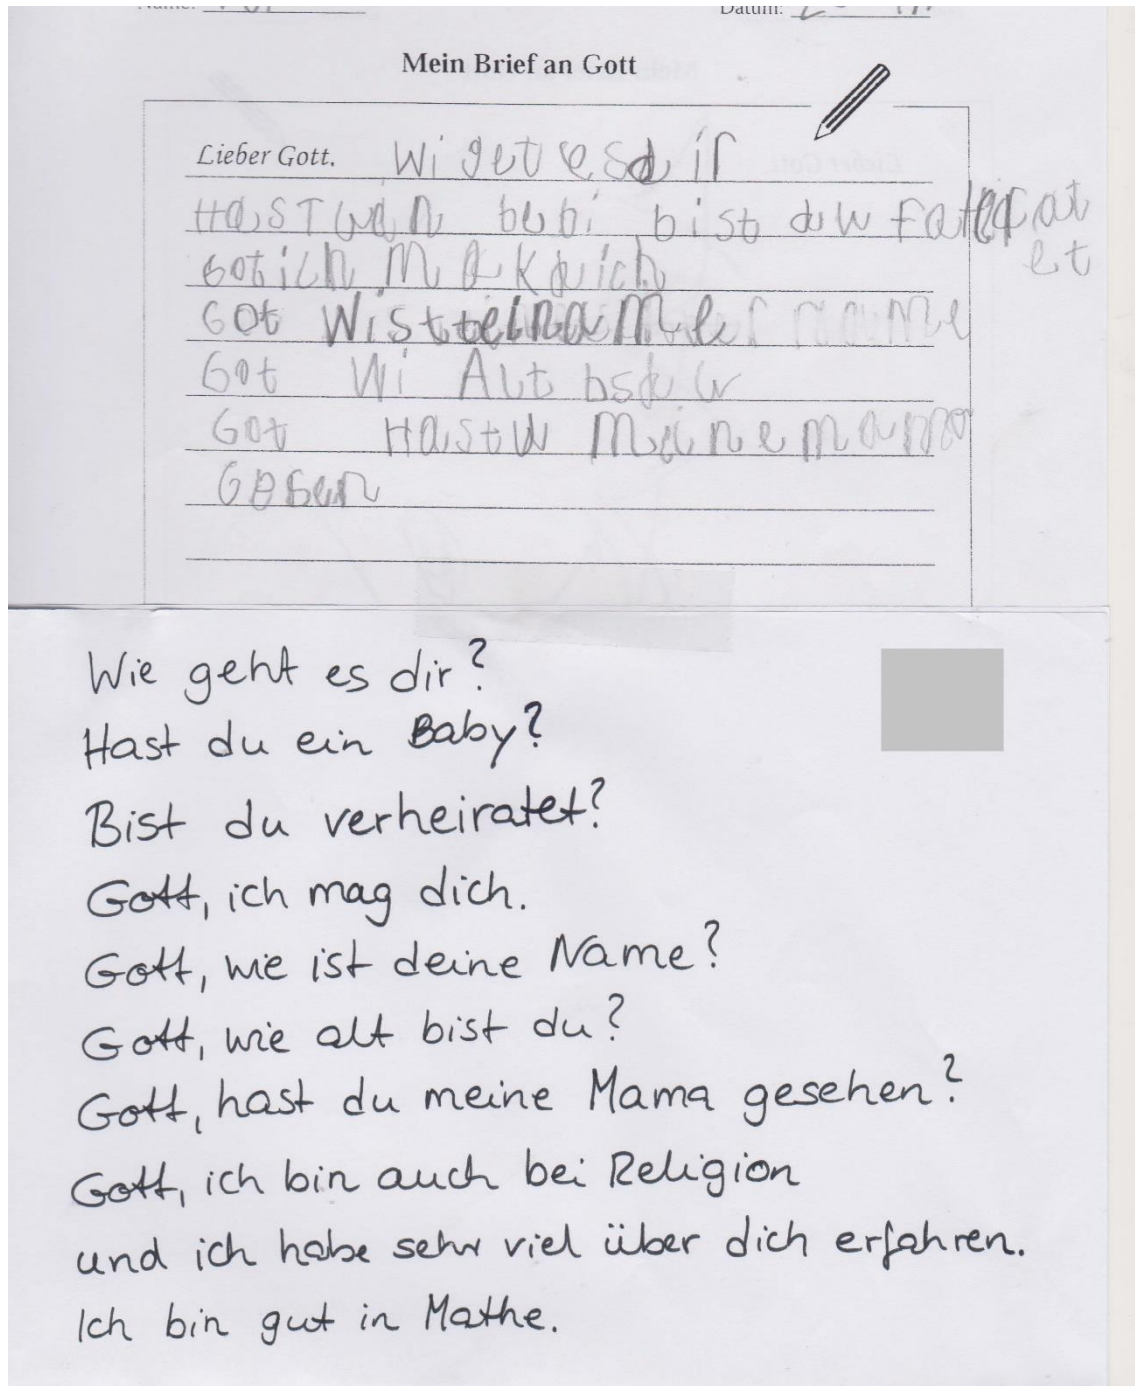 Datum:
Mein Brief an Gott
Lieber Gott. Wi get es dir
Hast wan bebi bist du Faterat
et
Got ich mak duich
Got Wist teiname name
Got Wi Alt bsdu
Got Hastu Meinemama
Gesen
Wie geht es dir?
Hast du ein Baby?
Bist du verheiratet?
Gott, ich mag dich.
Gott, wie ist deine Name?
Gott, wie alt bist du?
Gott, hast du meine Mama gesehen?
Gott, ich bin auch bei Religion
und ich habe sehr viel über dich erfahren.
Ich bin gut in Mathe.